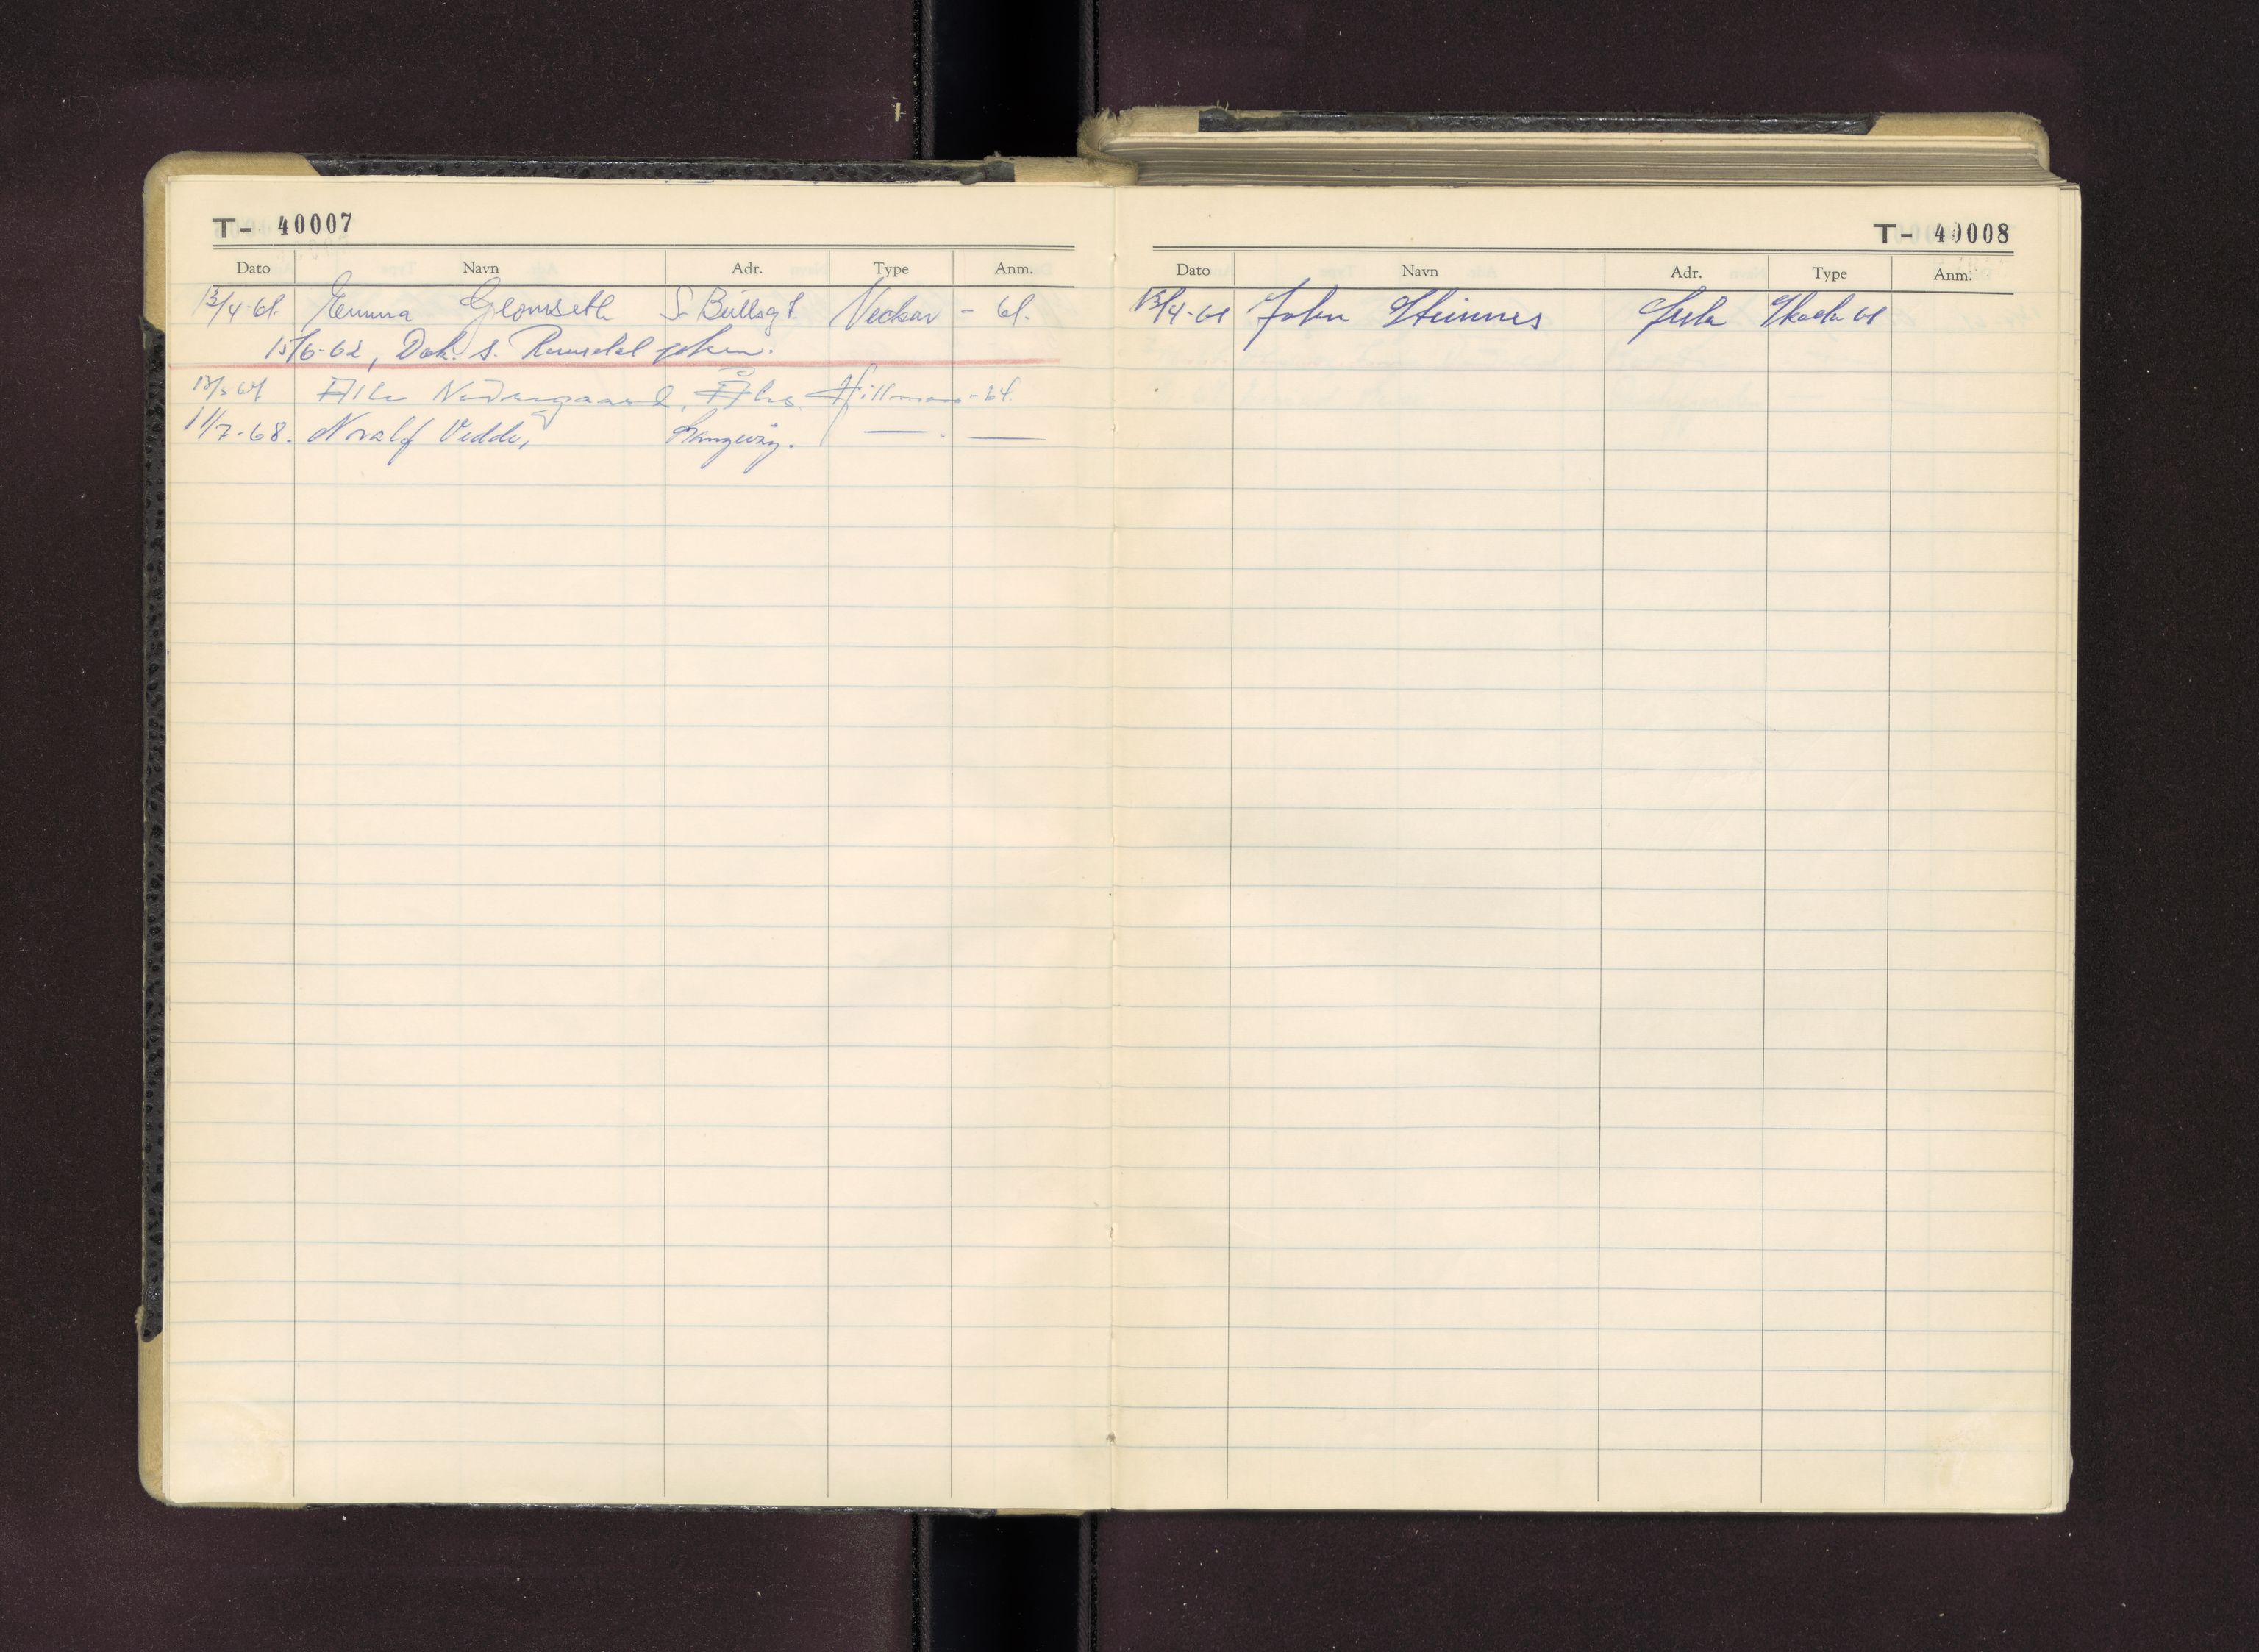 T- 40007
Dato Navn Adr. Type Anm.
13/4-61. Emma Glomseth S. Bullsgt. Neckar - 61.
15/6-62, Dok. s. Romsdal pkm.
Nedregaard, Åhs. Hillman -64.
11/7-68. Noralf Vedde, Langevåg. — . —
T- 40008
Dato Navn Adr. Type Anm.
13/4-61 John Steinnes Skoda 61